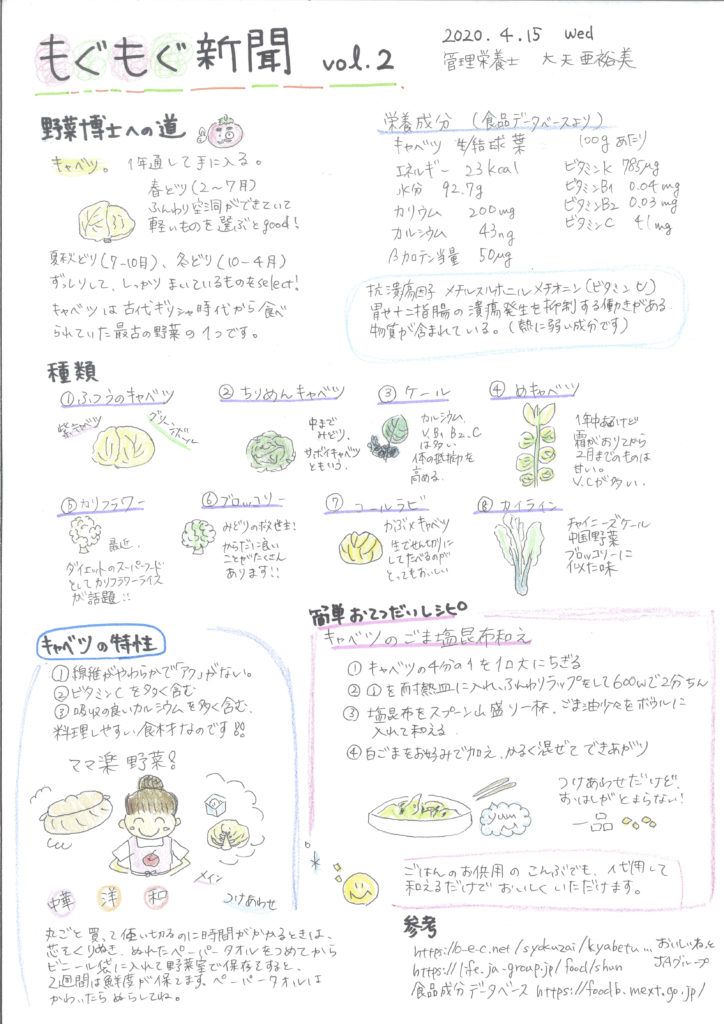 もぐもぐ新聞 vol.2
2020.4.15 wed
管理栄養士 大天亜裕美
野菜博士への道
キャベツ。1年通して手に入る。
春どり(2～7月)
ふんわり空洞ができていて
軽いものを選ぶとgood!
夏秋どり(7-10月)、冬どり(10-4月)
ずっしりして、しっかりまいているものをselect!
キャベツは古代ギリシャ時代から食べ
られていた最古の野菜の1つです。
栄養成分 (食品データベースより)
キャベツ 生/結球葉 100gあたり
エネルギー 23kcal
水分 92.7g
カリウム 200mg
カルシウム 43mg
βカロテン当量 50μg
ビタミンK 785μg
ビタミンB1 0.04mg
ビタミンB2 0.03mg
ビタミンC 41mg
抗潰瘍因子 メチルスルホニルメチオニン(ビタミンU)
胃や十二指腸の潰瘍発生を抑制する働きがある
物質が含まれている。(熱に弱い成分です)
種類
①ふつうのキャベツ
紫キャベツ
グリーンボール
②ちりめんキャベツ
中まで
みどり。
サボイキャベツ
ともいう。
③ケール
カルシウム、
V.B1 B2.C
は多い
体の抵抗力を
高める。
④めキャベツ
1年中あるけど
霜がおりてから
2月までのものは
甘い。
V.Cが多い。
⑤カリフラワー
最近、
ダイエットのスーパーフード
としてカリフラワーライス
が話題!!
⑥ブロッコリー
みどりの救世主!
からだに良い
ことがたくさん
あります!!
⑦コールラビ
かぶ×キャベツ
生でせん切りに
してたべるのが
とってもおいしい
⑧カイラン
チャイニーズケール
中国野菜
ブロッコリーに
似た味
キャベツの特性
①繊維がやわらかで「アク」がない。
②ビタミンCを多く含む
③吸収の良いカルシウムを多く含む。
料理しやすい食材なのです!!
ママ楽野菜!
メイン
中華 洋 和 つけあわせ
丸ごと買って使い切るのに時間がかかるときは、
芯をくりぬき、ぬれたペーパータオルをつめてから
ビニール袋に入れて野菜室で保存をすると、
2週間は鮮度が保てます。ペーパータオルは
かわいたらぬらしてね。
簡単おてつだいレシピ
キャベツのごま塩昆布和え
①キャベツの4分の1を1口大にちぎる
②①を耐熱皿に入れ、ふんわりラップをして600wで2分ちん
③塩昆布をスプーン山盛り一杯、ごま油少々をボウルに
入れて和える
④白ごまをお好みで加え、かるく混ぜてできあがり
つけあわせだけど、
おはしがとまらない!
一品
yum
ごはんのお供用のこんぶでも、代用して
和えるだけでおいしくいただけます。
参考
https://o-e-c.net/syokuzai/kyabetu … おいしいねっと
https://life.ja-group.jp/food/shun JAグループ
食品成分データベース https://fooddb.mext.go.jp/